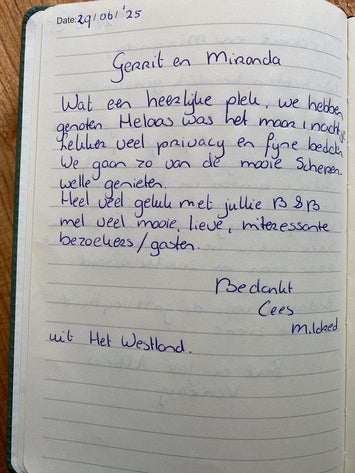 Date: 29/06/'25
Gerrit en Miranda
Wat een heerlijke plek, we hebben
genoten. Helaas was het maar 1 nacht,
lekker veel privacy en fijne bedden
We gaan zo van de mooie Scheven.
welle genieten.
Heel veel geluk met jullie B&B
met veel mooie, lieve, interessante
bezoekers/gasten.
Bedankt
Cees
Mildred
uit Het Westland.